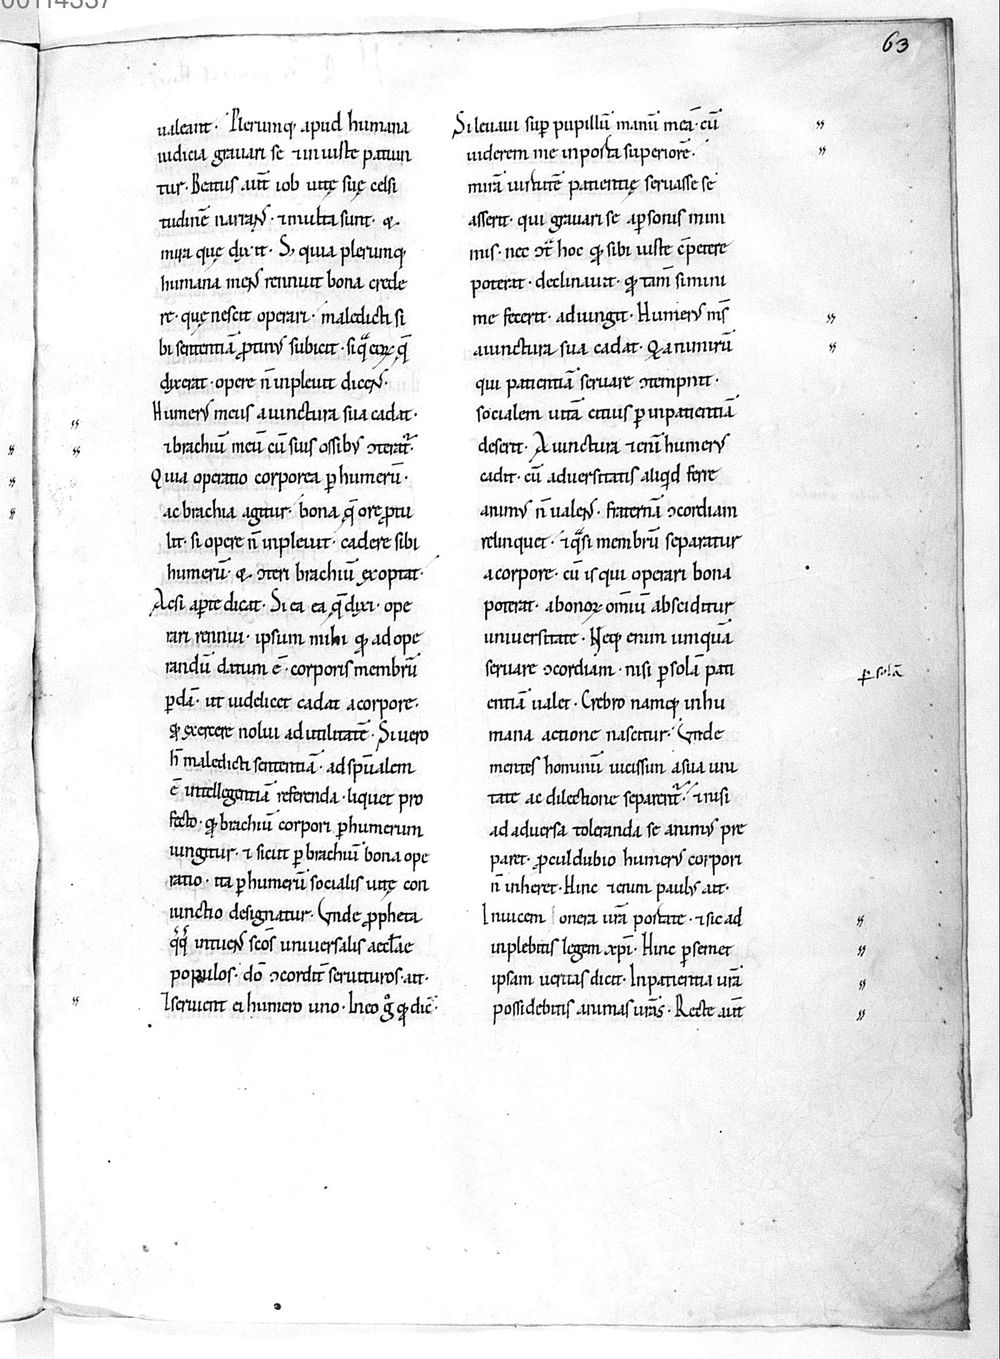 00114337
63
ualeant· Plerumq; apud humana
iudicia grauari se ⁊ iniuste patiun
tur· Beatus aut̄ iob uitę suę celsi
tudinē narrans· ⁊ multa sunt· &
mira quę dixit· Sꝫ quia plerumq;
humana mens rennuit bona crede
re· quę nescit operari· maledicti si
bi sententiā ꝓtinus subicit· si
dixerat· opere n̄ inpleuit dicens·
Humerus meus a iunctura sua cadat·
⁊ brachiū meū cū suis ossibus ɔterat᷑·
Quia operatio corporea ꝑ humerū·
ac brachia agitur· bona q̄ ore ꝓtu
lit· si opere n̄ inpleuit· cadere sibi
humerū· & ɔteri brachiū exoptat·
Acsi aꝑte dicat· Si ea q̄ dixi· ope
rari rennui· ipsum mihi qđ ad ope
randū datum ē· corporis membrū
ꝑdā· ut uidelicet cadat a corpore·
qđ exercere nolui ad utilitatē· Si uero
h̄ maledicti sententiā· ad sp̄ualem
ē intellegentiā referenda· liquet pro
fecto· qđ brachiū corpori ꝑ humerum
iungitur· ⁊ sicut ꝑ brachiū bona ope
ratio· ita ꝑ humerū socialis uitę con
iunctio designatur· Unde ꝓpheta
intuens scōs uniuersalis aecclae
populos· dō ɔcordit̄ seruituros· ait·
⁊ seruient ei humero uno· In eo g̊ qđ dic̄·
Si leuaui suꝑ pupillū manū meā· cū
uiderem me in porta superiorē·
mirā uirtutē patientię seruasse se
asserit· qui grauari se a ꝑsonis mini
mis· nec ɔt̄ hoc qđ sibi iuste c̄petere
poterat· declinauit· qđ tam̄ si mini
me fecerit· adiungit· Humerus ms̄
a iunctura sua cadat· Qa nimirū
qui patientiā seruare ɔtempnit·
socialem uitā citius ꝑ inpatientiā
deserit· A iunctura eteni humerus
cadit· cū aduersitatis aliqd ferre
animus n̄ ualens· fraternā ɔcordiam
relinquet· ⁊ qͣsi membrū separatur
a corpore· cū is qui operari bona
poterat· a bonoꝝ omīū absciditur
uniuersitate· Neq; enim umquā
seruare ɔcordiam· nisi ꝑ solā pati
ꝑ solā
entiā ualet· Crebro namq; in hu
mana actione nascitur· Unde
mentes hominū uicissim a sua uni
tate ac dilectione separent᷑· ⁊ nisi
ad aduersa toleranda se animus pre
paret· ꝓculdubio humerus corpori
n̄ inheret· Hinc etenim paulus ait·
Inuicem onera ur̄a portate· ⁊ sic ad
inplebitis legem xp̄i· Hinc ꝑ semet
ipsam ueritas dicit· In patientia ur̄a
possidebitis animas ur̄as· Recte aut̄